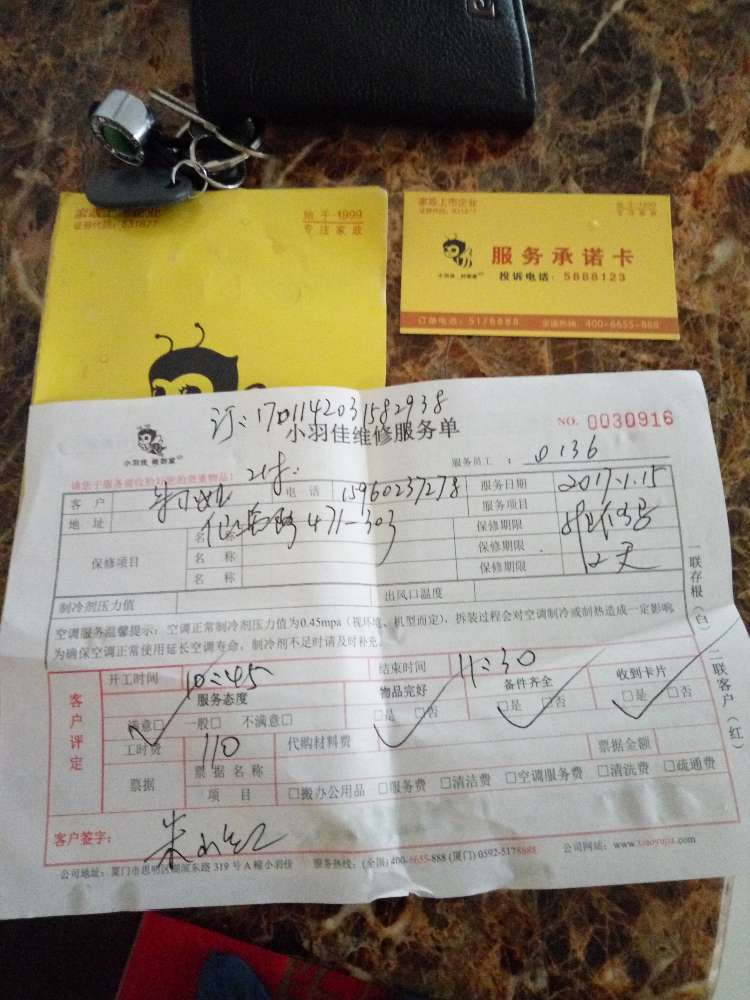 家政上市企业
证券代码：831877
始于1999
专注家政
家政上市企业
证券代码：831877
始于1999
专注家政
服务承诺卡
小羽佳 修到家
投诉电话：5888123
订单电话：5178888 全国热线：400-6655-888
订：1701142031582938
小羽佳维修服务单
NO. 0030916
小羽佳 修到家
服务员工： 0136
请您于服务前收拾好您的贵重物品！
客户 电话 15960237278 服务日期 2017.1.15
地址 471-303 服务项目
保修项目
名称 保修期限
名称 保修期限 12天
名称 保修期限
制冷剂压力值 出风口温度
空调服务温馨提示：空调正常制冷剂压力值为0.45mpa（视环境、机型而定），拆装过程会对空调制冷或制热造成一定影响，
为确保空调正常使用延长空调寿命，制冷剂不足时请及时补充。
一联存根（白）
二联客户（红）
客户评定
开工时间 10:45 结束时间 11:30
服务态度 物品完好 备件齐全 收到卡片
满意□ 一般□ 不满意□ □是 □否 □是 □否 □是 □否
工时费 110 代购材料费 票据金额
票据 票据名称
项目 □搬办公用品 □服务费 □清洁费 □空调服务费 □清洗费 □疏通费
客户签字：
公司地址：厦门市思明区湖滨东路319号A幢小羽佳 服务热线：(全国)400-6655-888 (厦门) 0592-5178888 公司网站：www.xiaoyujia.com